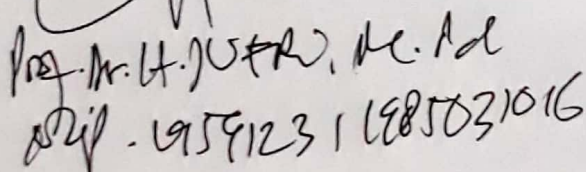 Prof. Dr. H. JUFRI, M. Pd
Nip. 195912311985031016